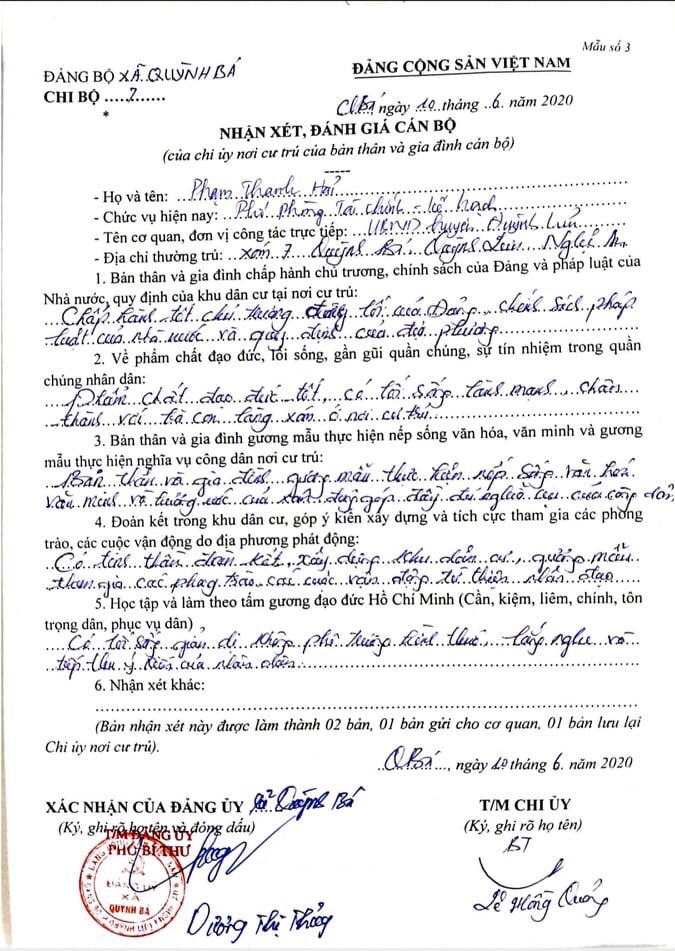 Mẫu số 3
ĐẢNG BỘ XÃ QUỲNH BÁ
ĐẢNG CỘNG SẢN VIỆT NAM
CHI BỘ .....7......
*
Q.Bá, ngày 10 tháng ..6. năm 2020
NHẬN XÉT, ĐÁNH GIÁ CÁN BỘ
(của chi ủy nơi cư trú của bản thân và gia đình cán bộ)
- Họ và tên: Phạm Thanh Hải
- Chức vụ hiện nay: Phó phòng Tài chính - kế hoạch
- Tên cơ quan, đơn vị công tác trực tiếp: UBND huyện Quỳnh Lưu
- Địa chỉ thường trú: xóm 7 Quỳnh Bá Quỳnh Lưu Nghệ An
1. Bản thân và gia đình chấp hành chủ trương, chính sách của Đảng và pháp luật của
Nhà nước, quy định của khu dân cư tại nơi cư trú:
Chấp hành tốt chủ trương đường lối của Đảng, chính sách pháp
luật của nhà nước và quy định của địa phương
2. Về phẩm chất đạo đức, lối sống, gần gũi quần chúng, sự tín nhiệm trong quần
chúng nhân dân:
Phẩm chất đạo đức tốt, có lối sống lành mạnh, chân
thành với bà con làng xóm ở nơi cư trú
3. Bản thân và gia đình gương mẫu thực hiện nếp sống văn hóa, văn minh và gương
mẫu thực hiện nghĩa vụ công dân nơi cư trú:
Bản thân và gia đình gương mẫu thực hiện nếp sống văn hoá
văn minh và hương ước của xóm đóng góp đầy đủ nghĩa vụ của công dân
4. Đoàn kết trong khu dân cư, góp ý kiến xây dựng và tích cực tham gia các phong
trào, các cuộc vận động do địa phương phát động:
Có tinh thần đoàn kết, xây dựng khu dân cư, gương mẫu
tham gia các phong trào, các cuộc vận động từ thiện nhân đạo
5. Học tập và làm theo tấm gương đạo đức Hồ Chí Minh (Cần, kiệm, liêm, chính, tôn
trọng dân, phục vụ dân)
Có lối sống giản dị không phô trương hình thức, lắng nghe và
tiếp thu ý kiến của nhân dân
6. Nhận xét khác:
(Bản nhận xét này được làm thành 02 bản, 01 bản gửi cho cơ quan, 01 bản lưu lại
Chi ủy nơi cư trú).
Q.Bá, ngày 10 tháng 6. năm 2020
XÁC NHẬN CỦA ĐẢNG ỦY xã Quỳnh Bá
T/M CHI ỦY
(Ký, ghi rõ họ tên và đóng dấu)
(Ký, ghi rõ họ tên)
T/M ĐẢNG ỦY
PHÓ BÍ THƯ
BT
ĐẢNG ỦY
XÃ
QUỲNH BÁ
Lê Hồng Quảng
Dương Thị Thắng